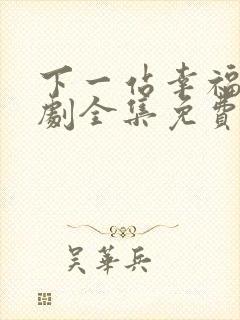 下一站幸福
劇全集免費
吴華兵